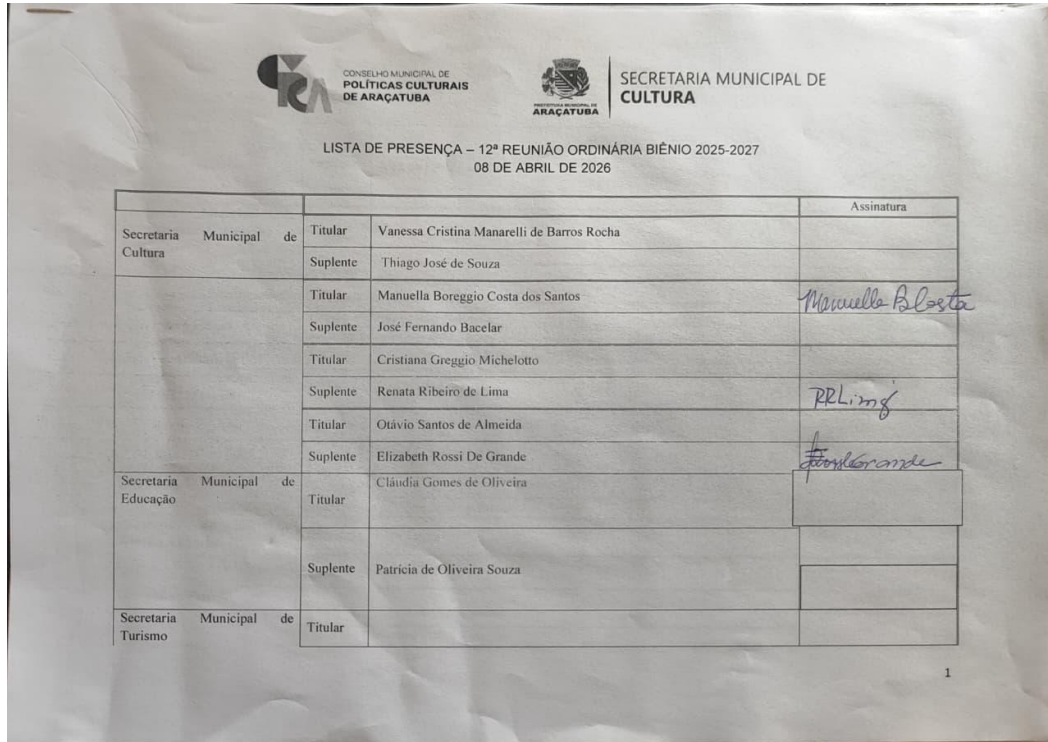 CONSELHO MUNICIPAL DE
POLÍTICAS CULTURAIS
DE ARAÇATUBA
PREFEITURA MUNICIPAL DE
ARAÇATUBA
SECRETARIA MUNICIPAL DE
CULTURA
LISTA DE PRESENÇA – 12ª REUNIÃO ORDINÁRIA BIÊNIO 2025-2027
08 DE ABRIL DE 2026
Assinatura
Secretaria Municipal de
Cultura
Titular Vanessa Cristina Manarelli de Barros Rocha
Suplente Thiago José de Souza
Titular Manuella Boreggio Costa dos Santos Manuella B Costa
Suplente José Fernando Bacelar
Titular Cristiana Greggio Michelotto
Suplente Renata Ribeiro de Lima RRLima
Titular Otávio Santos de Almeida
Suplente Elizabeth Rossi De Grande
Secretaria Municipal de
Educação
Titular Cláudia Gomes de Oliveira
Suplente Patrícia de Oliveira Souza
Secretaria Municipal de
Turismo
Titular
1